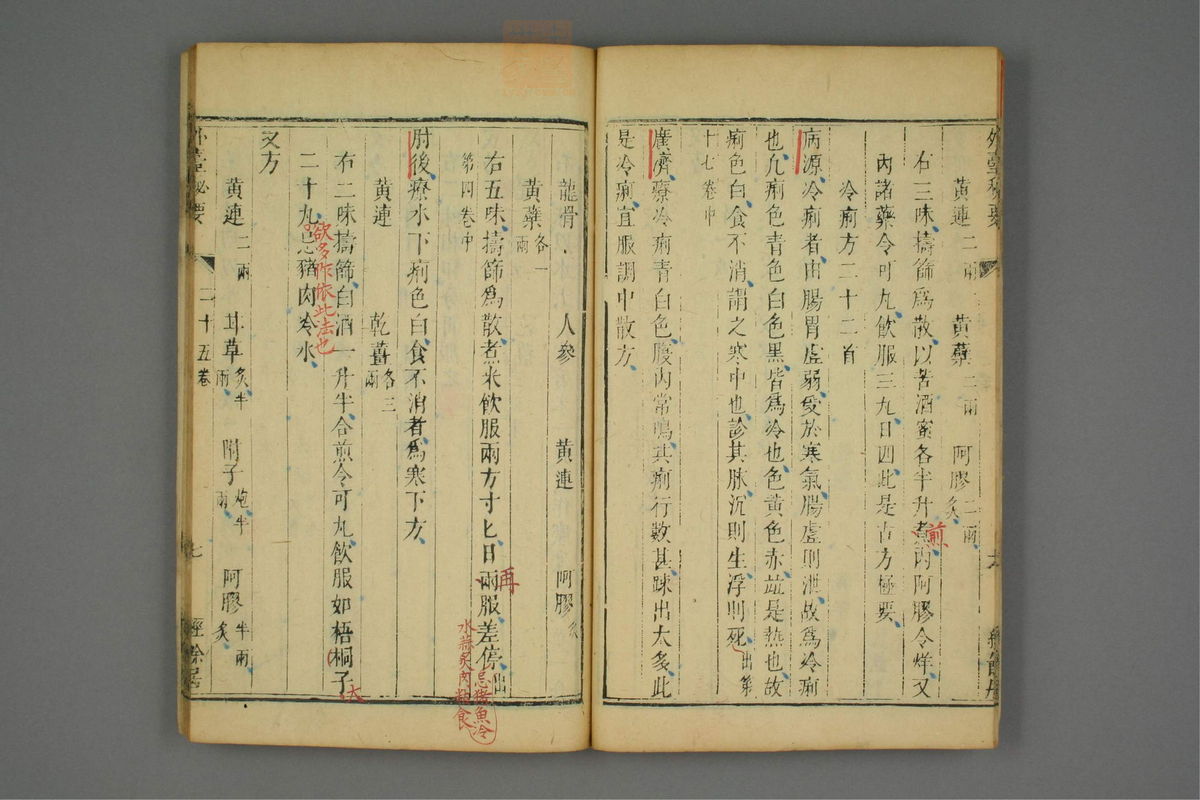 黃連二兩 黃蘗二兩 阿膠炙二兩
右三味擣篩爲散以苦酒蜜各半升煮內阿膠令烊又
煎
內諸藥令可丸飲服三丸日四此是古方極要
冷痢方二十二首
病源冷痢者由腸胃虛弱受於寒氣腸虛則泄故爲冷痢
也凡痢色青色白色黑皆爲冷也色黃色赤並是熱也故
痢色白食不消謂之寒中也診其脉沉則生浮則死出第
十七卷中
廣濟療冷痢青白色腹內常鳴其痢行數甚踈出太多此
是冷痢宜服調中散方
龍骨 人參 黃連 阿膠炙
黃蘗各一兩
右五味擣篩爲散煮米飲服兩方寸匕日兩服差停出
再
忌猪魚冷
水蒜炙肉粘食
第四卷中
肘後療水下痢色白食不消者爲寒下方
黃連 乾薑各三兩
右二味擣篩白酒一升半合煎令可丸飲服如梧桐子
大
欲多作依此法也
二十九忌猪肉冷水
又方
黃連二兩 甘草炙半兩 附子炮半兩 阿膠炙半兩
外臺秘要 二十五卷 七 經餘居